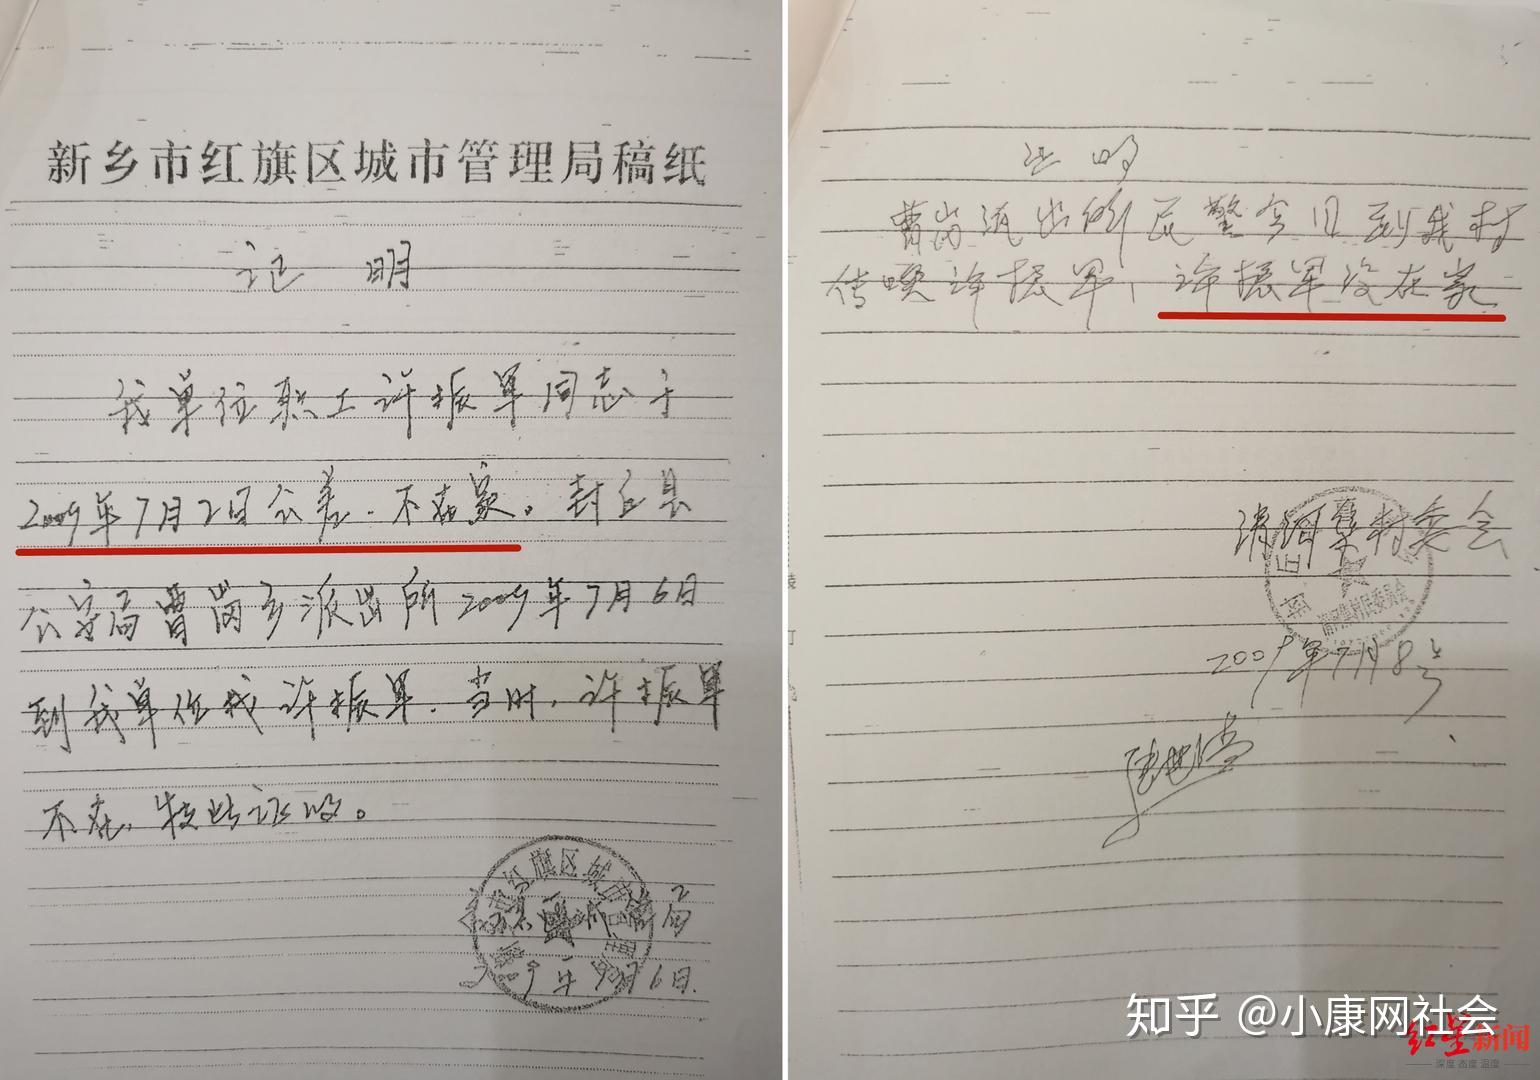 新乡市红旗区城市管理局稿纸
证 明
我单位职工许振军同志于
2009年7月2日公差.不在家。封丘县
公安局曹岗乡派出所2009年7月6日
到我单位找许振军.当时,许振军
不在,特此证明。
红旗区城市管理局
2009年7月6日.
证 明
曹岗派出所民警今日到我村
传唤许振军,许振军没在家
清河集村委会
清河集村民委员会
2009年7月8号
知乎 @小康网社会
红星新闻
深度 态度 温度